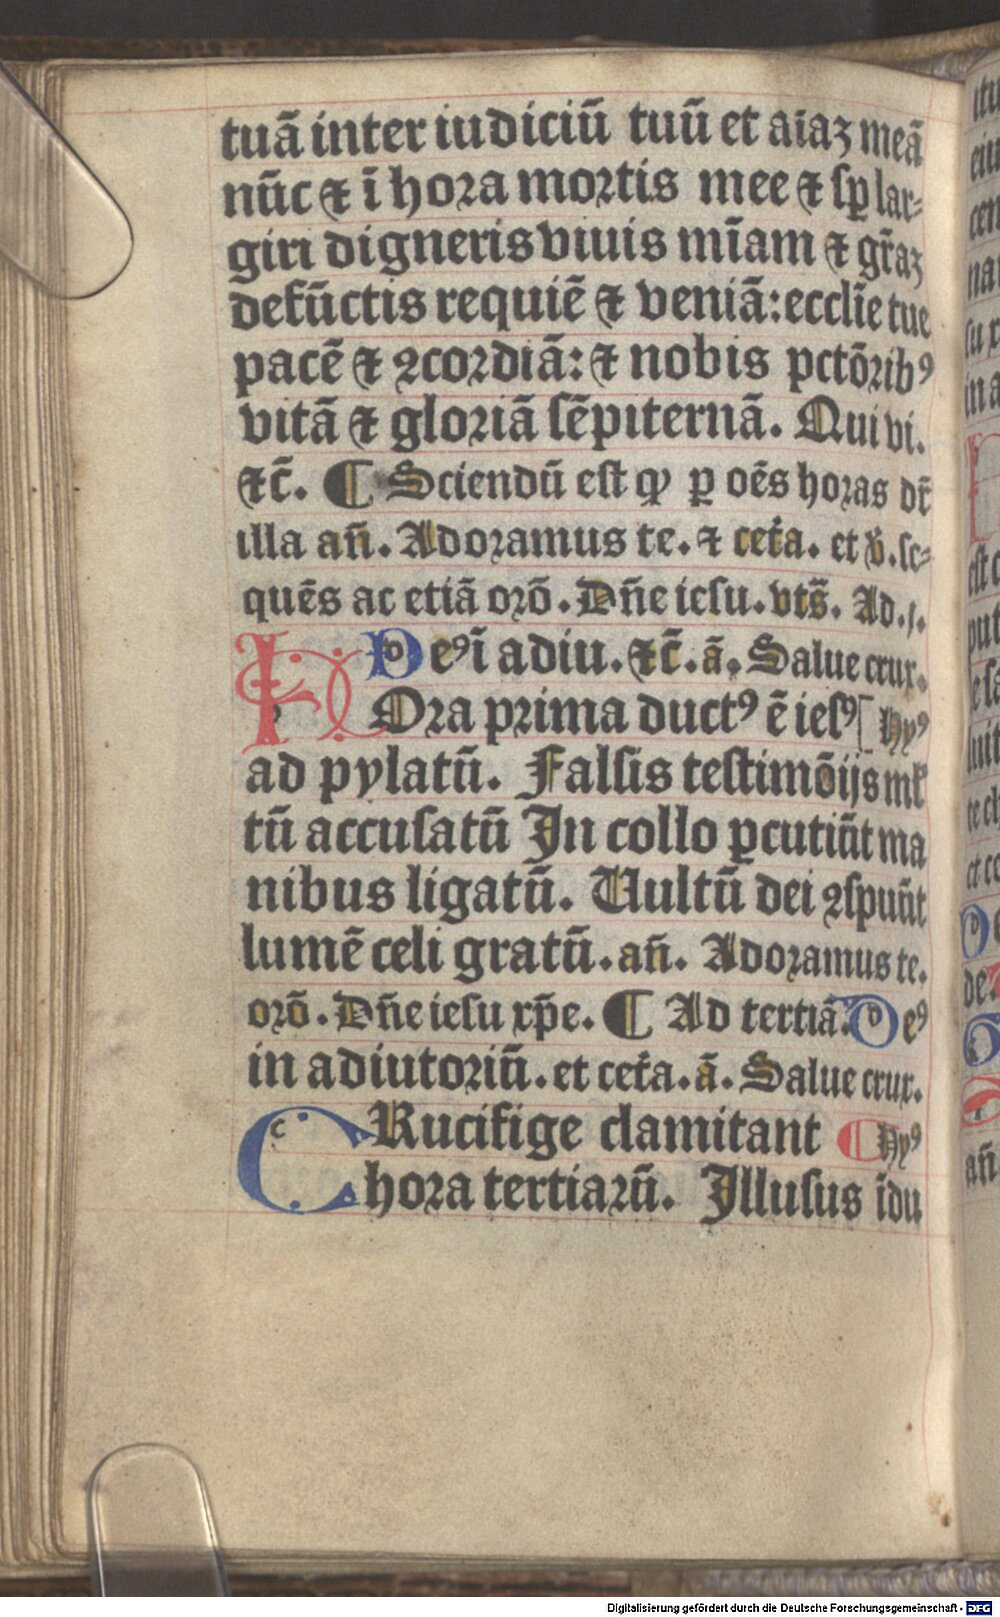 tuā inter iudiciū tuū et aīaꝫ meā
nūc ⁊ ī hora mortis mee ⁊ sꝑ lar⸗
giri digneris viuis mīam ⁊ gr̄aꝫ
defūctis requiē ⁊ veniā: eccl̄ie tue
pacē ⁊ ꝯcordiā: ⁊ nobis pctōribꝰ
vitā ⁊ gloriā sēpiternā. Qui vi.
⁊c̄. ¶ Sciendū est ꝙ ꝑ oēs horas dr̄
illa an̄. Adoramus te. ⁊ cet̄a. et v̄. se⸗
quēs ac etiā orō. Dn̄e iesu. vts̄. Ad .j.
Deꝰ ī adiu. ⁊c̄. ā. Salue crux.
HOra prima ductꝰ ē iesꝰ [Hyꝰ
ad pylatū. Falsis testimōijs ml̓
tū accusatū In collo ꝑcutiūt ma
nibus ligatū. Uultū dei ꝯspuūt
lumē celi gratū. an̄. Adoramus te.
orō. Dn̄e iesu xp̄e. ¶ Ad tertiā. Deꝰ
in adiutoriū. et cet̄a. ā. Salue crux.
CRucifige clamitant ¶ Hyꝰ
hora tertiarū. Illusus īdu
Digitalisierung gefördert durch die Deutsche Forschungsgemeinschaft - DFG